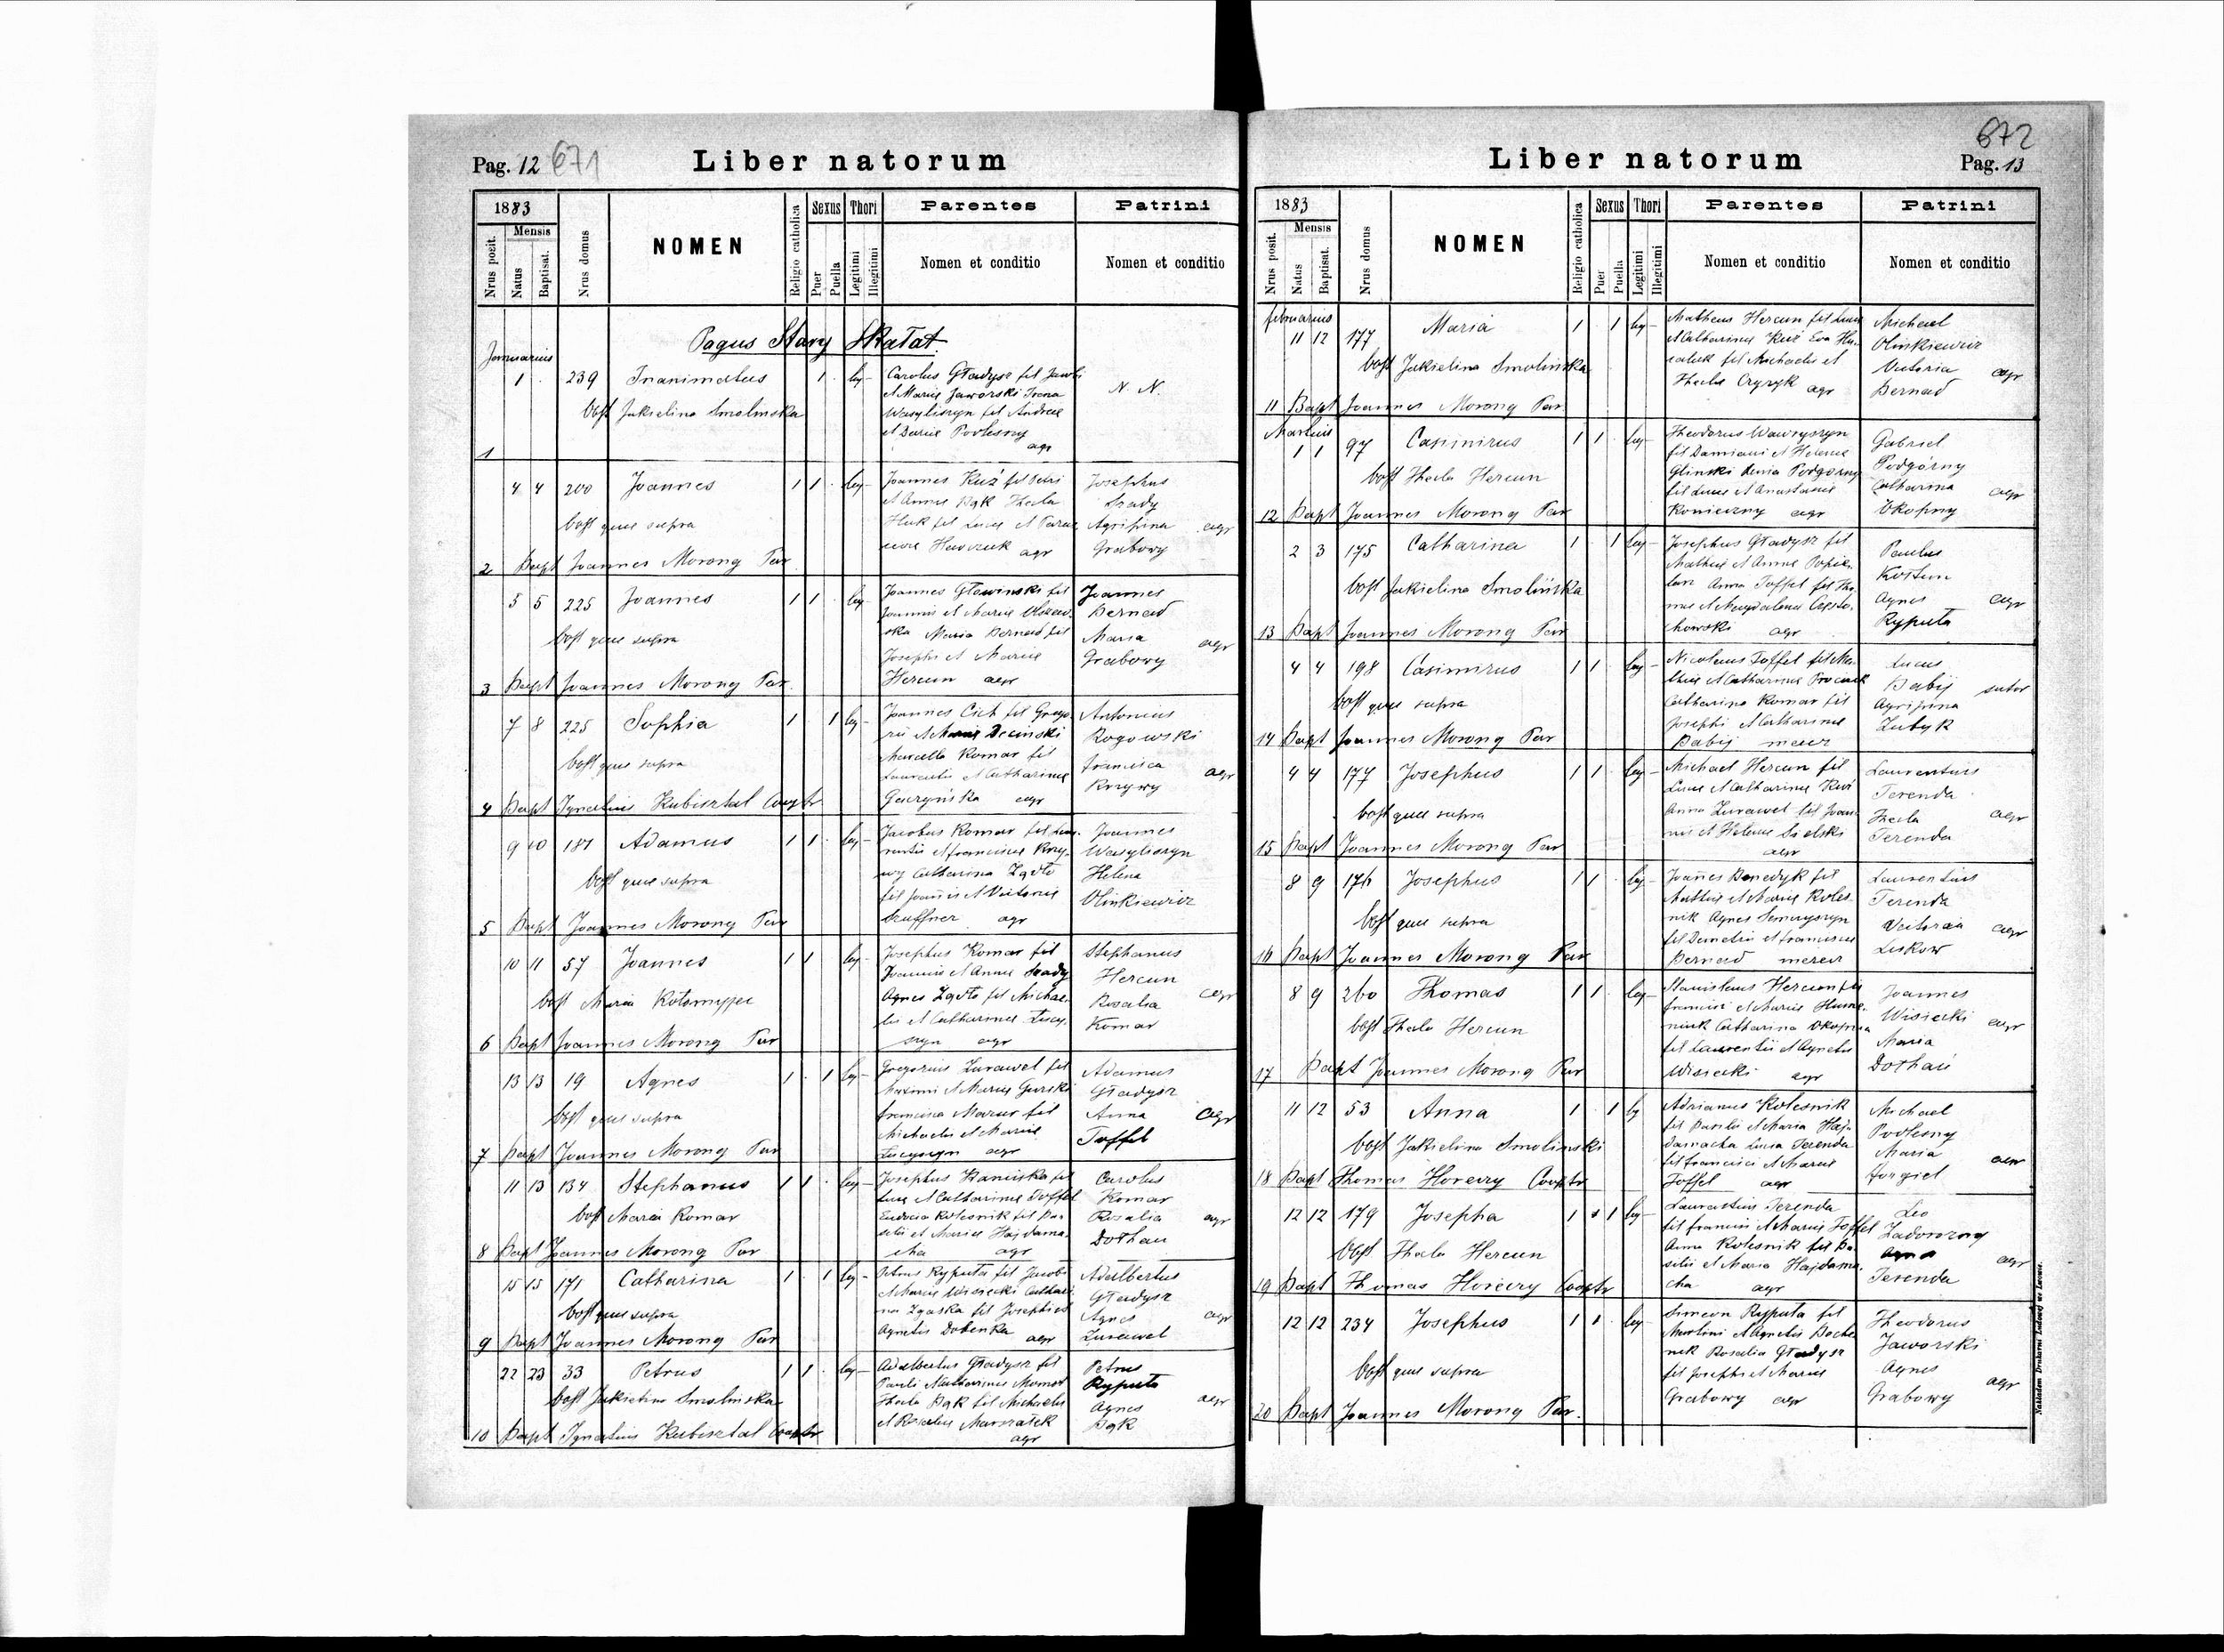 Pag. 12 671
Liber natorum
1883
Nrus posit.
Mensis
Natus
Baptisat.
Nrus domus
NOMEN
Religio catholica
Sexus
Puer
Puella
Thori
Legitimi
Illegitimi
Parentes
Nomen et conditio
Patrini
Nomen et conditio
Pagus Stary Skałat
Januarius
1 239 Inanimatus 1 leg
obst Jukielina Smolinska
Carolus Gładysz fil Jacobi
et Mariæ Jaworski Irena
Wasyliszyn fil Andreæ
et Dariæ Podlesny
agr
N. N.
1
4 4 200 Joannes 1 1 leg
obst quæ supra
Joannes Kuź fil Petri
et Annæ Bąk Thecla
Huk fil Lucæ et
agr
Josephus
Agripina agr
Grabowy
2 Bapt Joannes Morong Par
5 5 225 Joannes 1 1 leg
obst quæ supra
Joannes Głowinski fil
Joannis et Mariæ
Maria Bernad fil
Josephi et Mariæ
Hercun agr
Joannes
Bernad
Maria agr
Grabowy
3 Bapt Joannes Morong Par.
7 8 225 Sophia 1 1 leg
obst quæ supra
Joannes Cich fil Grego-
rii et Decinski
Marcella Komar fil
Laurentii et Catharinæ
agr
Antonius
Rogowski
Francisca agr
Krzywy
4 Bapt Ignatius Kubisztal Cooptr
9 10 187 Adamus 1 1 leg
obst quæ supra
Jacobus Komar fil Lau-
rentii et Franciscæ Krzy-
wy Catharina Żądło
fil Joannis et Victoriæ
Szuffner agr
Joannes
Wasyliszyn
Helena
Olinkiewicz
5 Bapt Joannes Morong Par
10 11 57 Joannes 1 1 leg
obst Maria Kołomyjec
Josephus Komar fil
Joannis et Annæ
Agnes Żądło fil Michae-
lis et Catharinæ
agr
Stephanus
Hercun
Rosalia agr
Komar
6 Bapt Joannes Morong Par
13 13 19 Agnes 1 1 leg
obst quæ supra
Gregorius Żurawel fil
Maximi et Mariæ Gurski
Francisca Mazur fil
Michaelis et Mariæ
agr
Adamus
Gładysz
Anna agr
Toffel
7 Bapt Joannes Morong Par
11 13 134 Stephanus 1 1 leg
obst Maria Komar
Josephus fil
Lucæ et Catharinæ Toffel
Eudocia Kolesnik fil Ba-
silii et Mariæ Hajdama-
cha agr
Carolus
Komar
Rosalia agr
Dołhań
8 Bapt Joannes Morong Par
15 15 171 Catharina 1 1 leg
obst quæ supra
Petrus Ryputa fil Jacobi
et Mariæ Wisiecki Cathari-
na fil Josephi et
Agnetis Dobenka agr
Adalbertus
Gładysz
Agnes agr
Żurawel
9 Bapt Joannes Morong Par
22 23 33 Petrus 1 1 leg
obst Jukielina Smolinska
Adalbertus Gładysz fil
Pauli et Catharinæ
Thecla Bąk fil Michaelis
et Rosaliæ Marszałek
agr
Petrus
Ryputa
Agnes agr
Bąk
10 Bapt Ignatius Kubisztal Cooptr
672
Liber natorum
Pag. 13
1883
Nrus posit.
Mensis
Natus
Baptisat.
Nrus domus
NOMEN
Religio catholica
Sexus
Puer
Puella
Thori
Legitimi
Illegitimi
Parentes
Nomen et conditio
Patrini
Nomen et conditio
Februarius
11 12 177 Maria 1 1 leg
obst Jukielina Smolinska
Matheus Hercun fil Lucæ
et Catharinæ Kuź Eva
fil Michaelis et
Theclæ Czyzyk agr
Michael
Olinkiewicz
Victoria agr
Bernad
11 Bapt Joannes Morong Par
Martius
1 1 97 Casimirus 1 1 leg
obst Thecla Hercun
Theodorus Wawryszyn
fil Damiani et Helenæ
Glinski Podgórny
fil Lucæ et Anastasiæ
Konieczny agr
Gabriel
Podgórny
Catharina agr
Okopny
12 Bapt Joannes Morong Par
2 3 175 Catharina 1 1 leg
obst Jukielina Smolińska
Josephus Gładysz fil
Mathiæ et Annæ
Anna Toffel fil Tho-
mæ et Magdalenæ Często-
chowski agr
Paulus
Kostun
Agnes agr
Ryputa
13 Bapt Joannes Morong Par
4 4 198 Casimirus 1 1 leg
obst quæ supra
Nicolaus Toffel fil Ma-
thiæ et Catharinæ
Catharina Komar fil
Josephi et Catharinæ
Babij
Lucas
Babij sutor
Agripina
Zubyk
14 Bapt Joannes Morong Par
4 4 177 Josephus 1 1 leg
obst quæ supra
Michael Hercun fil
Lucæ et Catharinæ Kuź
Anna Żurawel fil Joan-
nis et Helenæ
agr
Laurentius
Terenda
Thecla agr
Terenda
15 Bapt Joannes Morong Par
8 9 176 Josephus 1 1 leg
obst quæ supra
Joannes Benedyk fil
Mathiæ et Mariæ Koles-
nik Agnes
fil Demetrii et Franciscæ
Bernad
Laurentius
Terenda
Victoria agr
Leskow
16 Bapt Joannes Morong Par
8 9 260 Thomas 1 1 leg
obst Thecla Hercun
Stanislaus Hercun fil
Francisci et Mariæ
Catharina Okopna
fil Laurentii et Agnetis
Wisiecki agr
Joannes
Wisiecki agr
Maria
Dołhań
17 Bapt Joannes Morong Par
11 12 53 Anna 1 1 leg
obst Jukielina Smolinski
Adrianus Kolesnik
fil Basilii et Maria Haj-
damacha Lucia Terenda
fil Francisci et Mariæ
Toffel agr
Michael
Podlesny
Maria agr
Horgiel
18 Bapt Thomas Horeczy Cooptr
12 12 179 Josepha 1 1 leg
obst Thecla Hercun
Laurentius Terenda
fil Francisci et Mariæ Toffel
Anna Kolesnik fil Ba-
silii et Maria Hajdama-
cha agr
Leo
Zadorozny
agr
Terenda
19 Bapt Thomas Horeczy Cooptr
12 12 234 Josephus 1 1 leg
obst quæ supra
Simeon Ryputa fil
Martini et Agnetis
Rosalia Gładysz
fil Josephi et Mariæ
Grabowy agr
Theodorus
Jaworski
Agnes agr
Grabowy
20 Bapt Joannes Morong Par.
Nakładem Drukarni Ludowej we Lwowie.